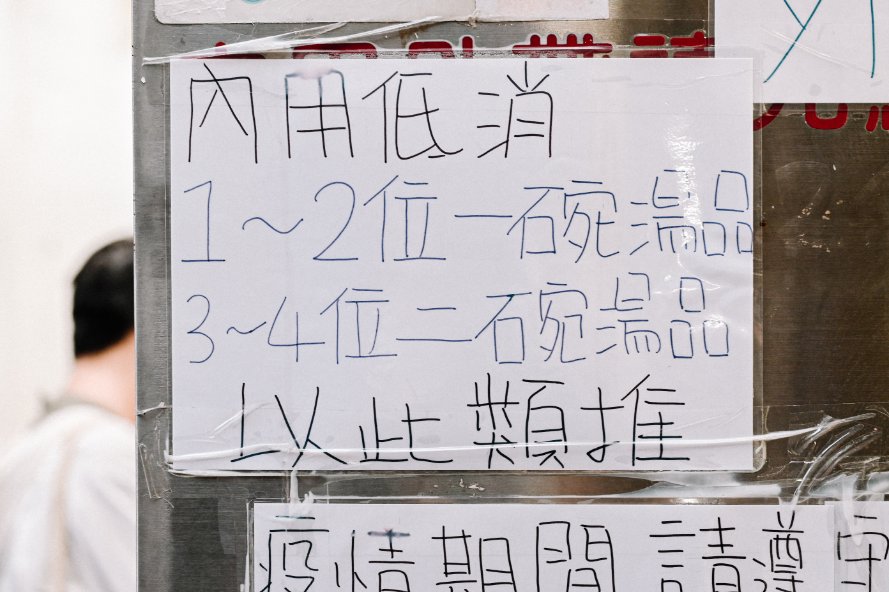 內用低消
1～2位一碗湯品
3～4位二碗湯品
以此類推
疫情期間 請遵守